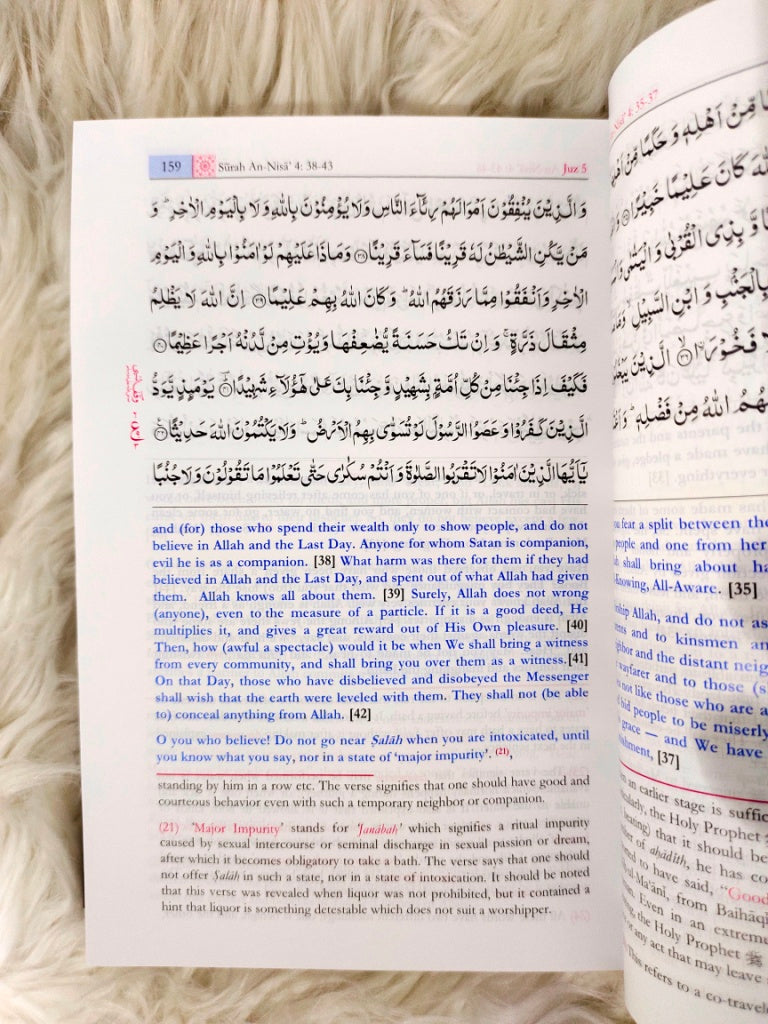 159 Sūrah An-Nisā' 4: 38-43 Juz 5
وَالَّذِيْنَ يُنْفِقُوْنَ اَمْوَالَهُمْ رِئَآءَ النَّاسِ وَلَا يُؤْمِنُوْنَ بِاللّٰهِ وَلَا بِالْيَوْمِ الْاٰخِرِ ؕ وَ
مَنْ يَّكُنِ الشَّيْطٰنُ لَهٗ قَرِيْنًا فَسَآءَ قَرِيْنًا ﴿۳۸﴾ وَمَاذَا عَلَيْهِمْ لَوْ اٰمَنُوْا بِاللّٰهِ وَالْيَوْمِ
الْاٰخِرِ وَاَنْفَقُوْا مِمَّا رَزَقَهُمُ اللّٰهُ ؕ وَكَانَ اللّٰهُ بِهِمْ عَلِيْمًا ﴿۳۹﴾ اِنَّ اللّٰهَ لَا يَظْلِمُ
مِثْقَالَ ذَرَّةٍ ۚ وَاِنْ تَكُ حَسَنَةً يُّضٰعِفْهَا وَيُؤْتِ مِنْ لَّدُنْهُ اَجْرًا عَظِيْمًا ﴿۴۰﴾
فَكَيْفَ اِذَا جِئْنَا مِنْ كُلِّ اُمَّةٍۭ بِشَهِيْدٍ وَّجِئْنَا بِكَ عَلٰى هٰٓؤُلَآءِ شَهِيْدًا ﴿۴۱﴾ يَوْمَئِذٍ يَّوَدُّ
الَّذِيْنَ كَفَرُوْا وَعَصَوُا الرَّسُوْلَ لَوْ تُسَوّٰى بِهِمُ الْاَرْضُ ؕ وَلَا يَكْتُمُوْنَ اللّٰهَ حَدِيْثًا ﴿۴۲﴾
يٰۤاَيُّهَا الَّذِيْنَ اٰمَنُوْا لَا تَقْرَبُوا الصَّلٰوةَ وَاَنْتُمْ سُكٰرٰى حَتّٰى تَعْلَمُوْا مَا تَقُوْلُوْنَ وَلَا جُنُبًا
and (for) those who spend their wealth only to show people, and do not
believe in Allah and the Last Day. Anyone for whom Satan is companion,
evil he is as a companion. [38] What harm was there for them if they had
believed in Allah and the Last Day, and spent out of what Allah had given
them. Allah knows all about them. [39] Surely, Allah does not wrong
(anyone), even to the measure of a particle. If it is a good deed, He
multiplies it, and gives a great reward out of His Own pleasure. [40]
Then, how (awful a spectacle) would it be when We shall bring a witness
from every community, and shall bring you over them as a witness.[41]
On that Day, those who have disbelieved and disobeyed the Messenger
shall wish that the earth were leveled with them. They shall not (be able
to) conceal anything from Allah. [42]
O you who believe! Do not go near Ṣalāh when you are intoxicated, until
you know what you say, nor in a state of 'major impurity'. (21),
standing by him in a row etc. The verse signifies that one should have good and
courteous behavior even with such a temporary neighbor or companion.
(21) 'Major Impurity' stands for 'Janābah' which signifies a ritual impurity
caused by sexual intercourse or seminal discharge in sexual passion or dream,
after which it becomes obligatory to take a bath. The verse says that one should
not offer Ṣalāh in such a state, nor in a state of intoxication. It should be noted
that this verse was revealed when liquor was not prohibited, but it contained a
hint that liquor is something detestable which does not suit a worshipper.
4: 35-37
مِّنْ اَهْلِهٖ وَحَكَمًا مِّنْ
كَانَ عَلِيْمًا خَبِيْرًا
وَّ بِذِى الْقُرْبٰى وَالْيَتٰمٰى
بِالْجَنْۢبِ وَابْنِ السَّبِيْلِ
فَخُوْرًا ﴿۳۶﴾ الَّذِيْنَ
اللّٰهُ مِنْ فَضْلِهٖ ؕ
fear a split between the
people and one from her
shall bring about
Knowing, All-Aware. [35]
Allah, and do not as
and to kinsmen
and the distant
wayfarer and to those
not like those who are a
bid people to be miserly
grace — and We have
[37]
an earlier stage is
the Holy Prophet
beating) that it should be
of aḥādīth, he has
to have said, "Good
from Baihaqī
Even in an extreme
the Holy Prophet
or any act that may leave
refers to a